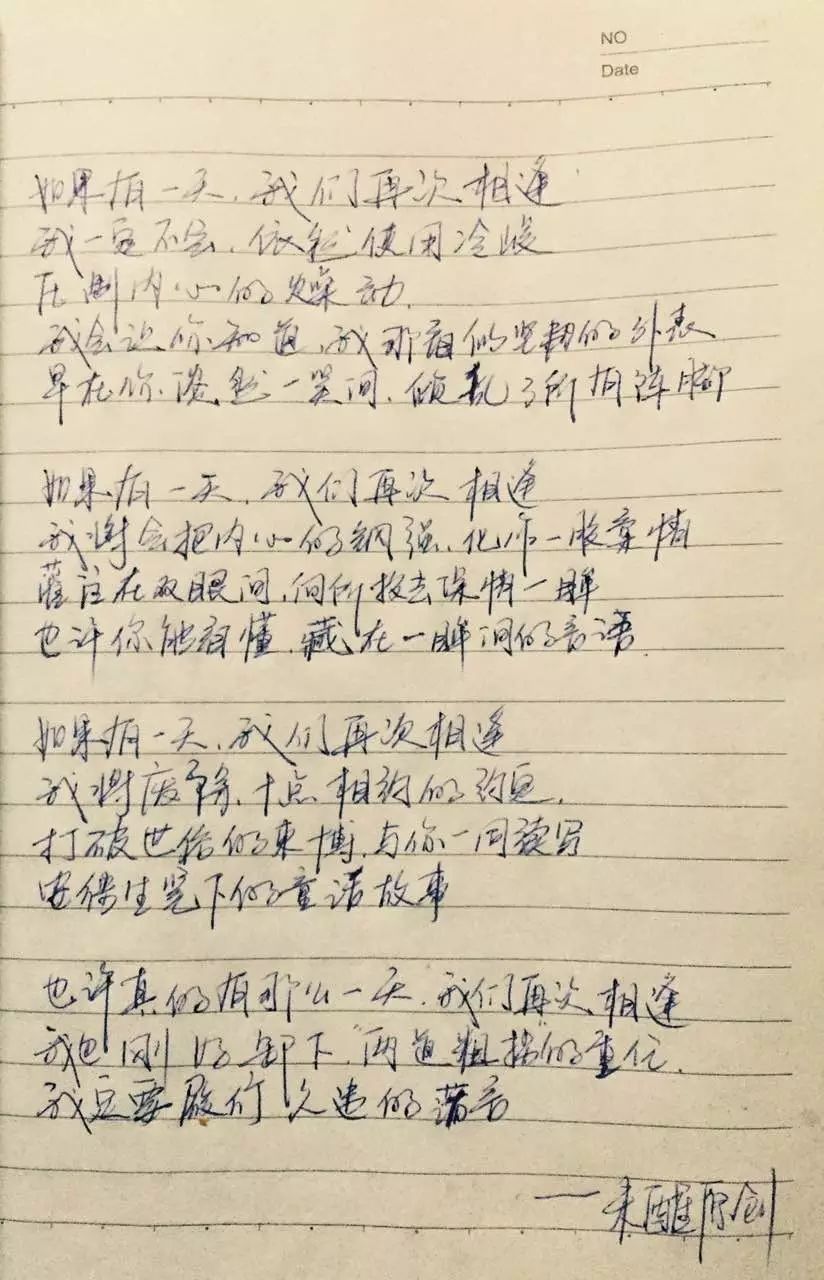 NO
Date
如果有一天,我们再次相逢
我一定不会,依然使用冷峻
压制内心的燥动,
我会让你知道,我那看似坚韧的外表
早在你淡然一笑间,倾乱了所有阵脚
如果有一天,我们再次相逢
我将会把内心的钢强,化作一股柔情
灌注在双眼间,向你投去深情一眸
也许你能看懂,藏在一眸间的言语
如果有一天,我们再次相逢
我将废弃,十点相约的约定,
打破世俗的束博,与你一同读写
安徒生笔下的童话故事
也许真的有那么一天,我们再次相逢
我也刚好卸下"两道粗扛"的重任,
我定要履行久违的诺言
——未醒原创